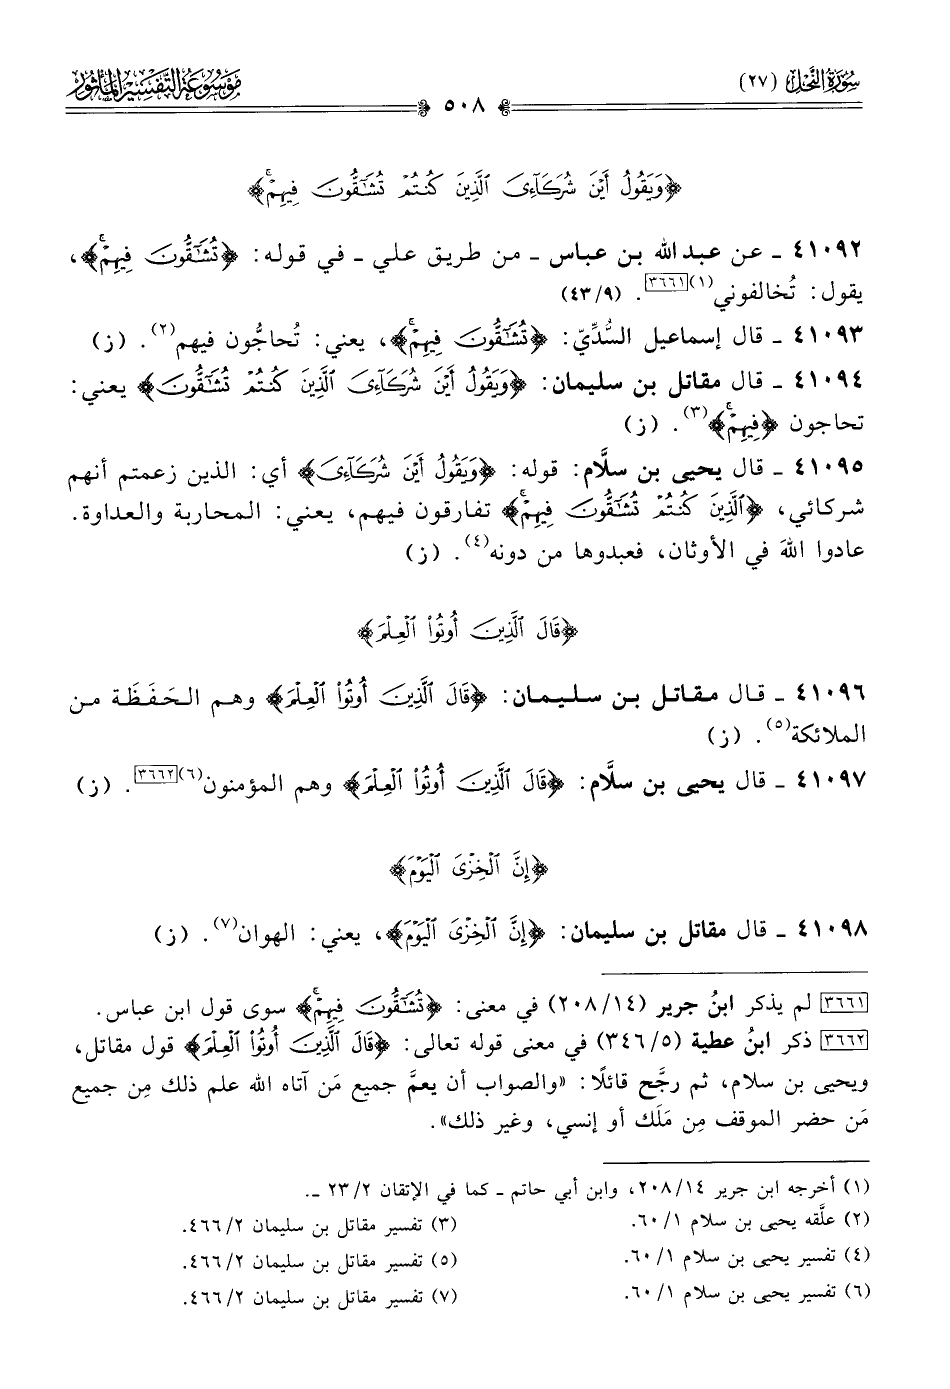 سُورَةُ النَّحْلِ (٢٧)
٥٠٨
مَوْسُوعَةُ التَّفْسِيرِ المَأْثُور
﴿وَيَقُولُ أَيْنَ شُرَكَآءِىَ ٱلَّذِينَ كُنتُمْ تُشَٰٓقُّونَ فِيهِمْۚ﴾
٤١٠٩٢ ـ عن عبد الله بن عباس ـ من طريق علي ـ في قوله: ﴿تُشَٰٓقُّونَ فِيهِمْۚ﴾،
يقول: تُخالفوني(١)[٣٦٦١]. (٤٣/٩)
٤١٠٩٣ ـ قال إسماعيل السُّدِّيّ: ﴿تُشَٰٓقُّونَ فِيهِمْۚ﴾، يعني: تُحاجُّون فيهم(٢). (ز)
٤١٠٩٤ ـ قال مقاتل بن سليمان: ﴿وَيَقُولُ أَيْنَ شُرَكَآءِىَ ٱلَّذِينَ كُنتُمْ تُشَٰٓقُّونَ﴾ يعني:
تحاجون ﴿فِيهِمْۚ﴾(٣). (ز)
٤١٠٩٥ ـ قال يحيى بن سلَّام: قوله: ﴿وَيَقُولُ أَيْنَ شُرَكَآءِىَ﴾ أي: الذين زعمتم أنهم
شركائي، ﴿ٱلَّذِينَ كُنتُمْ تُشَٰٓقُّونَ فِيهِمْۚ﴾ تفارقون فيهم، يعني: المحاربة والعداوة.
عادوا اللهَ في الأوثان، فعبدوها من دونه(٤). (ز)
﴿قَالَ ٱلَّذِينَ أُوتُوا۟ ٱلْعِلْمَ﴾
٤١٠٩٦ ـ قال مقاتل بن سليمان: ﴿قَالَ ٱلَّذِينَ أُوتُوا۟ ٱلْعِلْمَ﴾ وهم الحَفَظَة من
الملائكة(٥). (ز)
٤١٠٩٧ ـ قال يحيى بن سلَّام: ﴿قَالَ ٱلَّذِينَ أُوتُوا۟ ٱلْعِلْمَ﴾ وهم المؤمنون(٦)[٣٦٦٢]. (ز)
﴿إِنَّ ٱلْخِزْىَ ٱلْيَوْمَ﴾
٤١٠٩٨ ـ قال مقاتل بن سليمان: ﴿إِنَّ ٱلْخِزْىَ ٱلْيَوْمَ﴾، يعني: الهوان(٧). (ز)
[٣٦٦١] لم يذكر ابنُ جرير (٢٠٨/١٤) في معنى: ﴿تُشَٰٓقُّونَ فِيهِمْۚ﴾ سوى قول ابن عباس.
[٣٦٦٢] ذكر ابنُ عطية (٣٤٦/٥) في معنى قوله تعالى: ﴿قَالَ ٱلَّذِينَ أُوتُوا۟ ٱلْعِلْمَ﴾ قول مقاتل،
ويحيى بن سلام، ثم رجَّح قائلًا: «والصواب أن يعمَّ جميع مَن آتاه الله علم ذلك مِن جميع
مَن حضر الموقف مِن مَلَك أو إنسي، وغير ذلك».
(١) أخرجه ابن جرير ٢٠٨/١٤، وابن أبي حاتم ـ كما في الإتقان ٢٣/٢ ـ.
(٢) علَّقه يحيى بن سلام ٦٠/١. (٣) تفسير مقاتل بن سليمان ٤٦٦/٢.
(٤) تفسير يحيى بن سلام ٦٠/١. (٥) تفسير مقاتل بن سليمان ٤٦٦/٢.
(٦) تفسير يحيى بن سلام ٦٠/١. (٧) تفسير مقاتل بن سليمان ٤٦٦/٢.